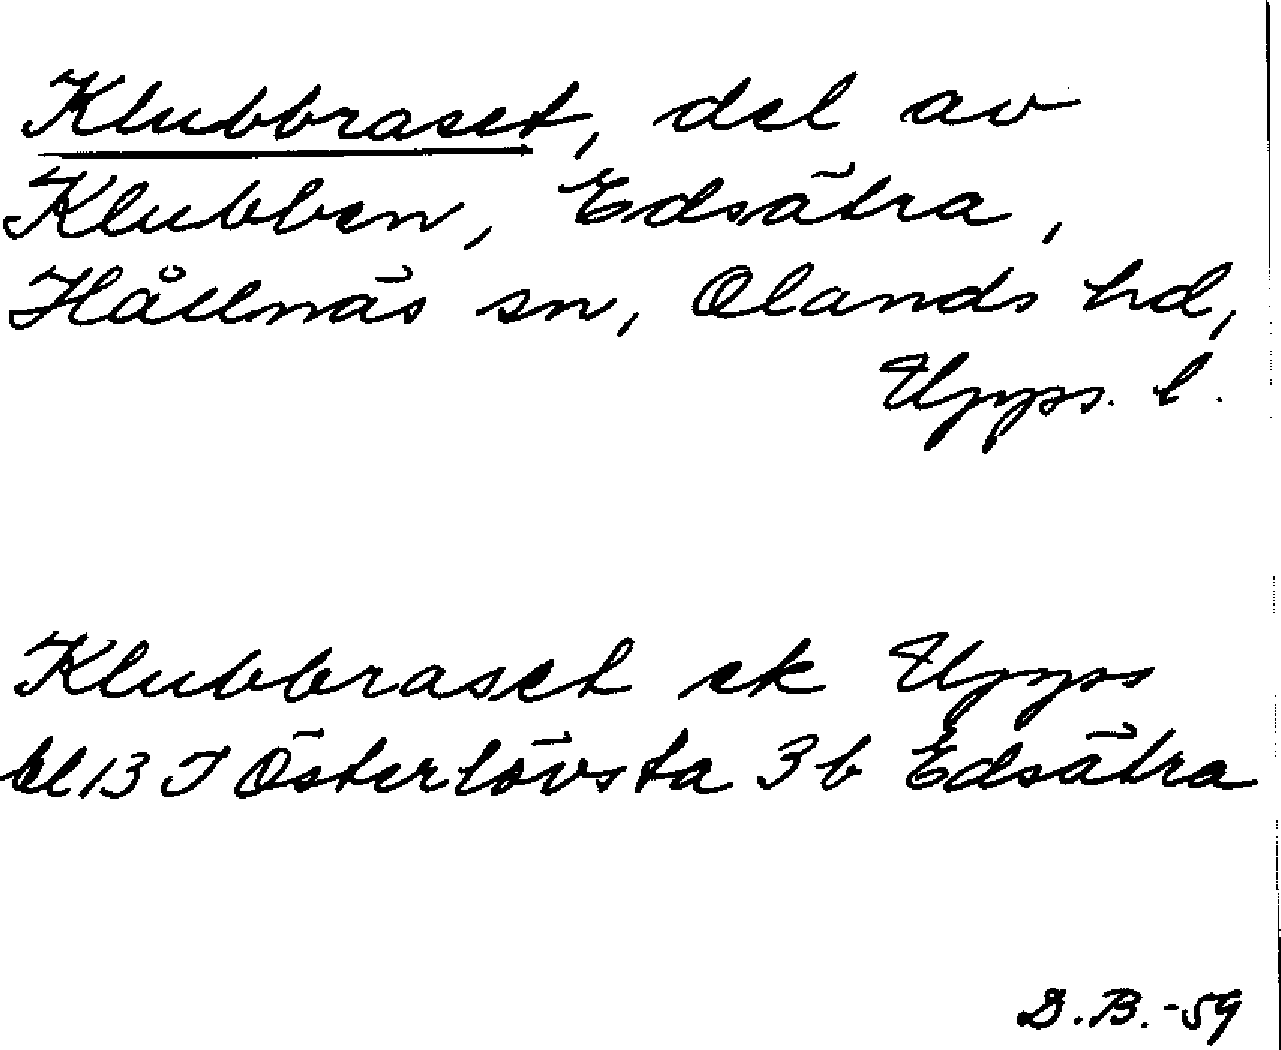 Klubbraset, del av
Klubben, Edsätra,
Hållnäs sn, Olands hd,
Upps. l.
Klubbraset ek Upps
bl 13 J Österlövsta 3b Edsätra
D.B.-59